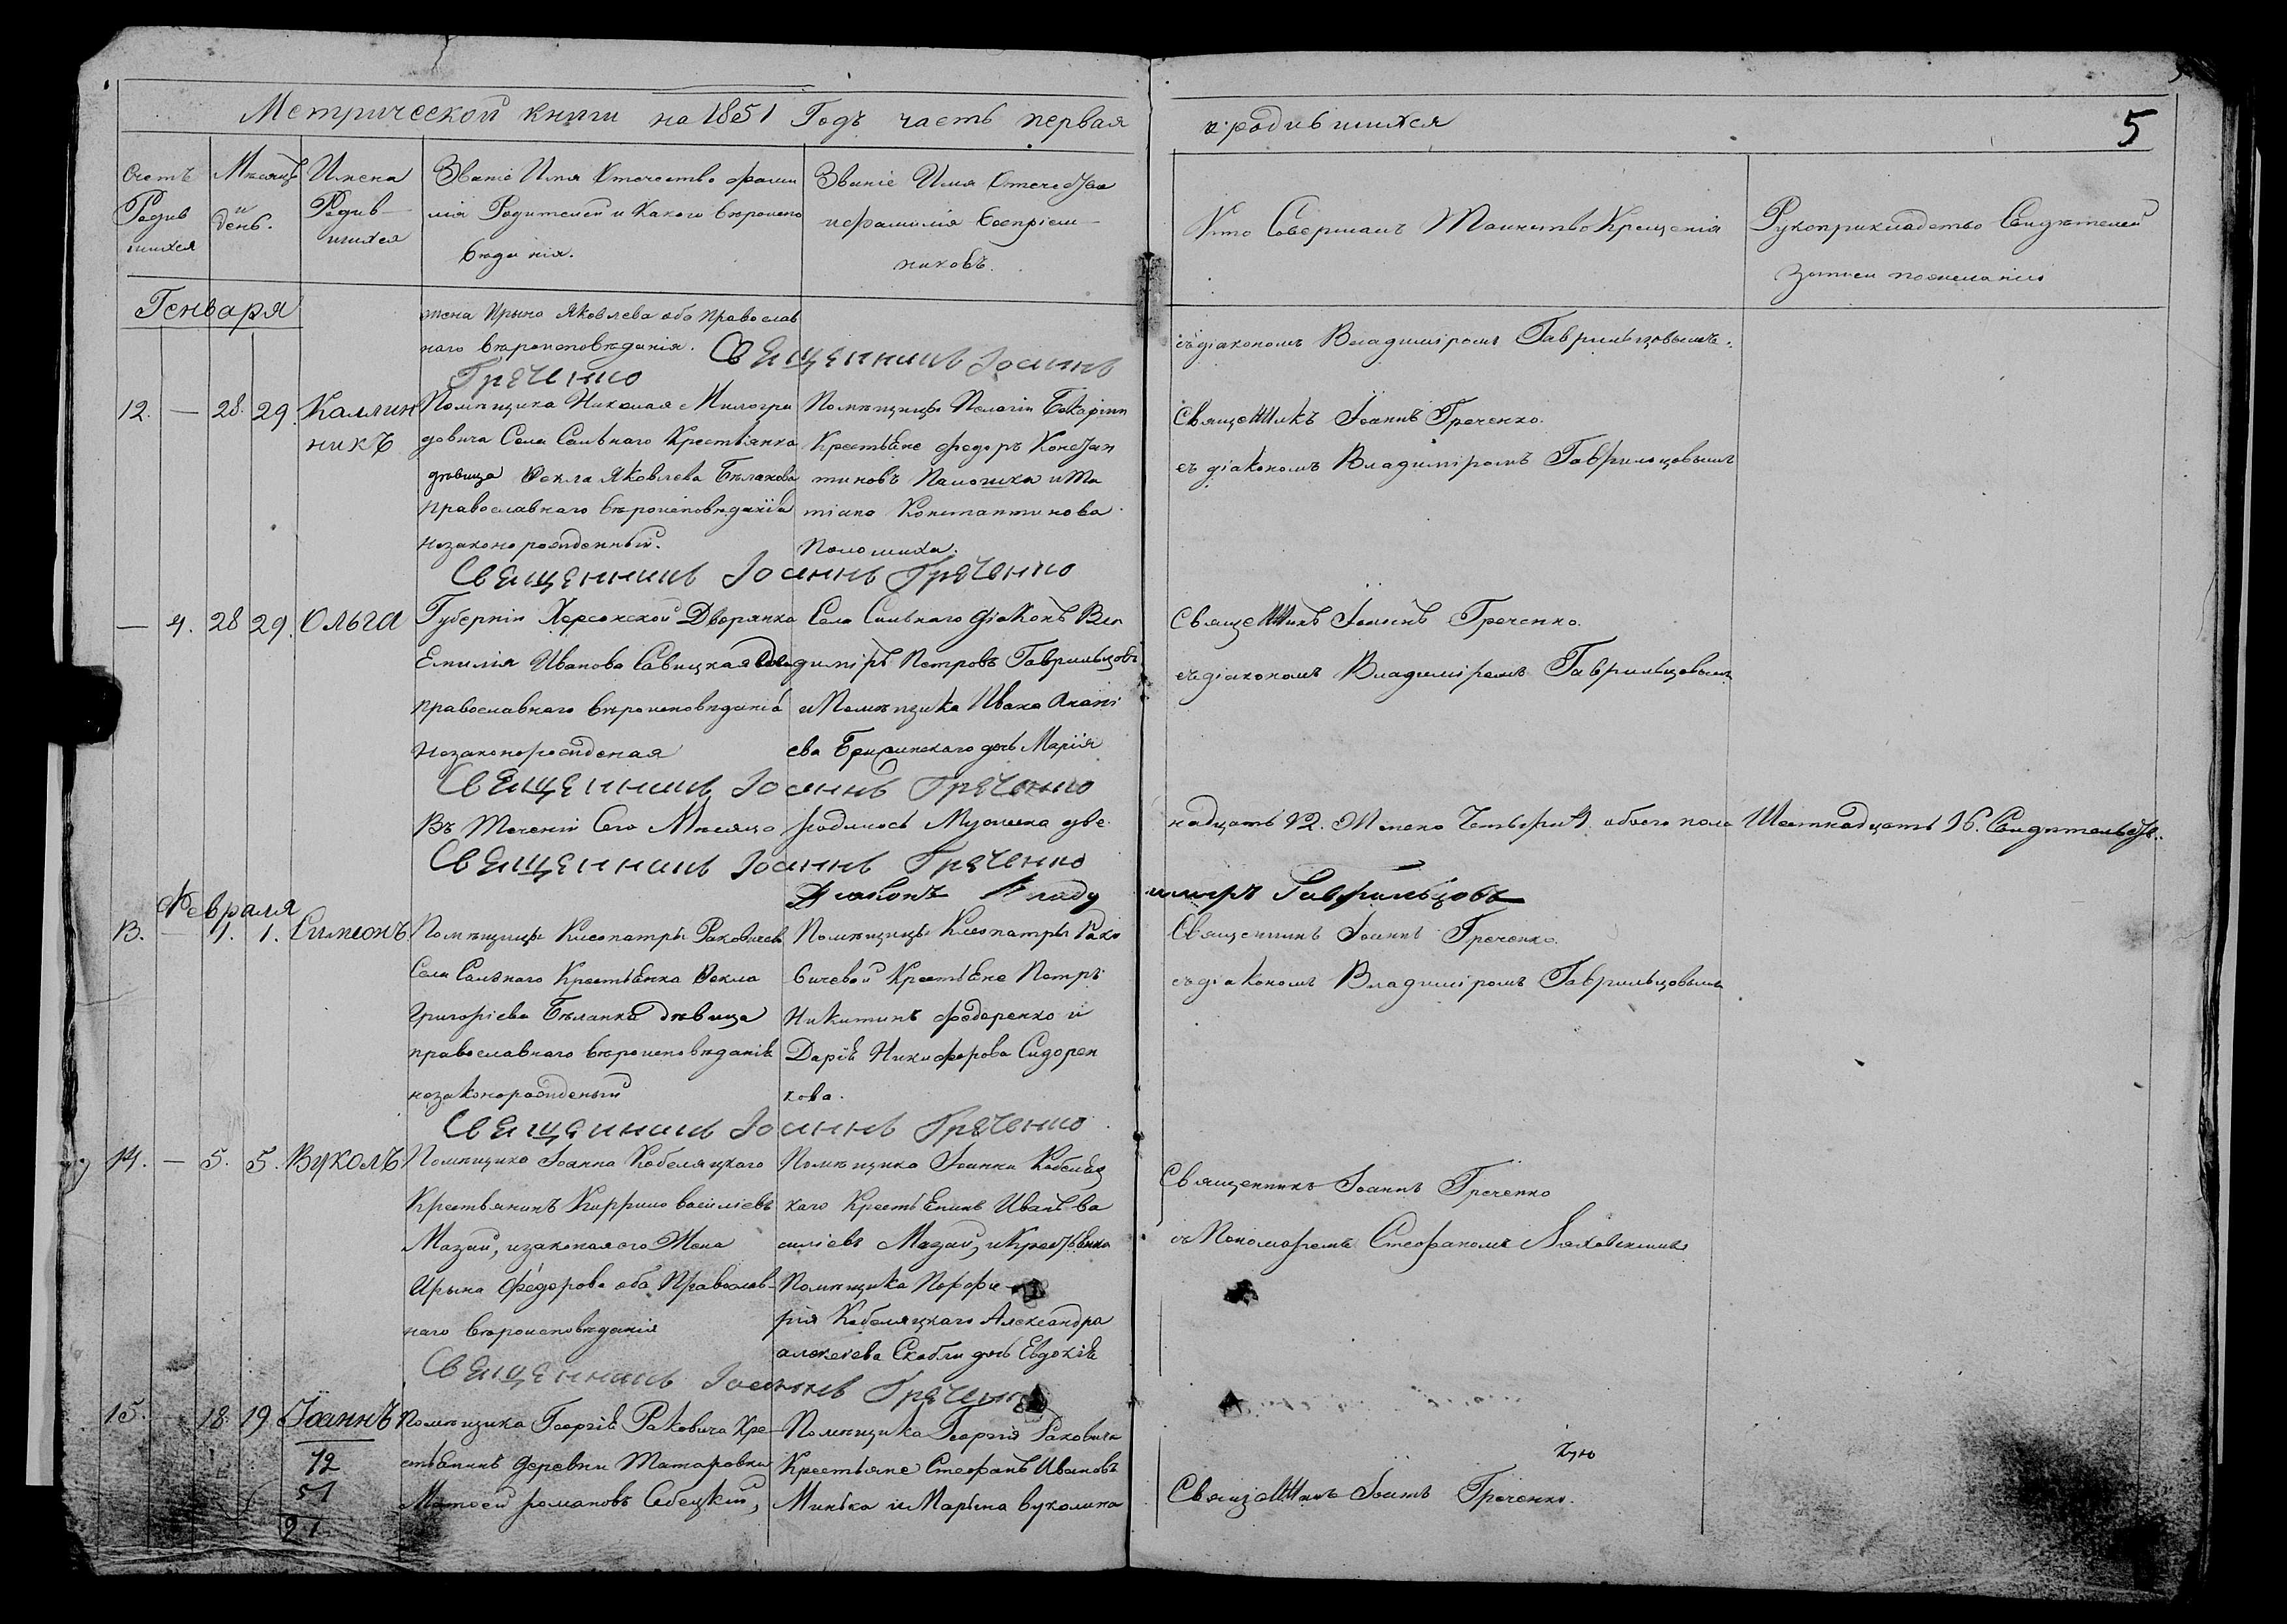 Метрической книги на 1851 Годъ часть первая
о родившихся
5
Счетъ Родив шихся
Мѣсяцъ и день.
Имена Родив— шихся
Званіе Имя Отечество фами
лія Родителей и Какого вѣроиспо
вѣданія.
Званіе Имя Отечество
и фамилія Воспріем—
никовъ.
Кто Совершалъ Таинство Крещенія
Рукоприкладство Свидѣтелей
записи по желанію
Генваря
жена Ирына Яковлева оба Православ
наго вѣроисповѣданія. Священникъ Іоаннъ
Греченко
съ діакономъ Владиміромъ Гаврильцовымъ.
12. — 28. 29. Каллин
никъ
Помѣщика Николая Милогра
довича Села Сальнаго Крестьянка
дѣвица Фекла Яковлева Бѣлакова
православнаго вѣроисповѣданія
незаконорожденный.
Помѣщицы Пелагіи
Крестьяне Федоръ Констан
тиновъ и Та
тіана Константинова
Священникъ Іоаннъ Греченко.
съ діакономъ Владиміромъ Гаврильцовымъ
Священникъ Іоаннъ Греченко
— 4. 28 29. Ольга
Губерніи Херсонской Дворянка
Емилія Иванова Савицкая
православнаго вѣроисповѣданія
незаконорожденая
Села Сальнаго діаконъ Вла
диміръ Петровъ Гаврильцовъ
и Помѣщика Ивана
дочь Марія
Священникъ Іоаннъ Греченко.
съ діакономъ Владиміромъ Гаврильцовымъ
Священникъ Іоаннъ Греченко
Въ Теченіи Сего Мѣсяца родилось Мужеска две
надцать 12. Женска Четыри 4. обоего пола Шестнадцать 16. Свидѣтельств..
Священникъ Іоаннъ Греченко
Діаконъ Влади миръ Гаврильцовъ
Февраля
13. — 1. 1. Симеонъ.
Помѣщицы Клеопатры Раковичев
Села Сальнаго Крестьянка Фекла
Григоріева Бѣланка дѣвица
православнаго вѣроисповѣданія
незаконорожденый
Помѣщицы Клеопатры Рако
вичевой Крестьяне Петръ
Никитинъ Федоренко и
Дарія Никифорова Сидорен
кова.
Священникъ Іоаннъ Греченко.
съ діакономъ Владиміромъ Гаврильцовымъ
Священникъ Іоаннъ Греченко
14. — 5. 5. Вуколъ.
Помѣщика Іоанна Кобеляцкаго
Крестьянинъ Киррило Василіевъ
Мазай, и законая его Жена
Ирына Федорова оба Православ—
наго вѣроисповѣданія
Помѣщика Іоанна Кобеляц
каго Крестьянинъ Иванъ Ва
силіевъ Мазай, и Крестьянка
Помѣщика Порфи—
рія Кобеляцкаго Александра
алексіева Скобли дочь Евдокія
Священникъ Іоаннъ Греченко
съ Пономаремъ Стефаномъ Ляховскимъ
Священникъ Іоаннъ Греченко
15. — 18. 19. Іоаннъ
12
51
21
Помѣщика Георгія Раковича Кре—
стьянинъ деревни Татаровки
Матѳей романовъ Себецкій,
Помѣщика Георгія Раковича
Крестьяне Стефанъ Ивановъ
Минька и Марына вуколина
Священникъ Іоаннъ Греченко.